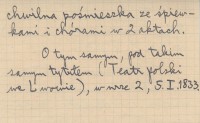 chwilna pośmieszka ze śpiew-
kami i chórami w 2 aktach.
O tym samym, pod takim
samym tytułem (Teatr polski
we Lwowie), w nrze 2, 5. I. 1833.